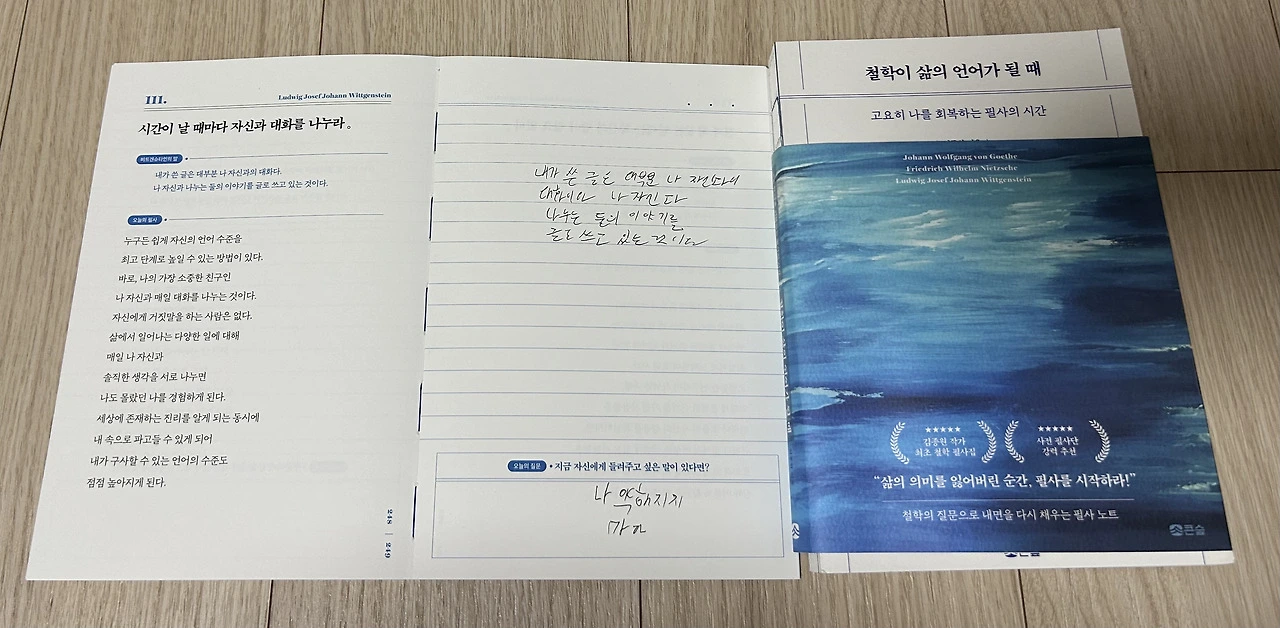 III.
Ludwig Josef Johann Wittgenstein
시간이 날 때마다 자신과 대화를 나누라。
비트겐슈타인의 말
내가 쓴 글은 대부분 나 자신과의 대화다.
나 자신과 나누는 둘의 이야기를 글로 쓰고 있는 것이다.
오늘의 필사
누구든 쉽게 자신의 언어 수준을
최고 단계로 높일 수 있는 방법이 있다.
바로, 나의 가장 소중한 친구인
나 자신과 매일 대화를 나누는 것이다.
자신에게 거짓말을 하는 사람은 없다.
삶에서 일어나는 다양한 일에 대해
매일 나 자신과
솔직한 생각을 서로 나누면
나도 몰랐던 나를 경험하게 된다.
세상에 존재하는 진리를 알게 되는 동시에
내 속으로 파고들 수 있게 되어
내가 구사할 수 있는 언어의 수준도
점점 높아지게 된다.
248 | 249
내가 쓴 글은 대부분 나 자신과의
대화이다 나 자신과
나누는 둘의 이야기를
글로 쓰고 있는 것이다
오늘의 질문 • 지금 자신에게 들려주고 싶은 말이 있다면?
나 약해지지
마라
철학이 삶의 언어가 될 때
고요히 나를 회복하는 필사의 시간
Johann Wolfgang von Goethe
Friedrich Wilhelm Nietzsche
Ludwig Josef Johann Wittgenstein
★★★★★
김종원 작가
최초 철학 필사집
★★★★★
사전 필사단
강력 추천
“삶의 의미를 잃어버린 순간, 필사를 시작하라!”
철학의 질문으로 내면을 다시 채우는 필사 노트
큰숲